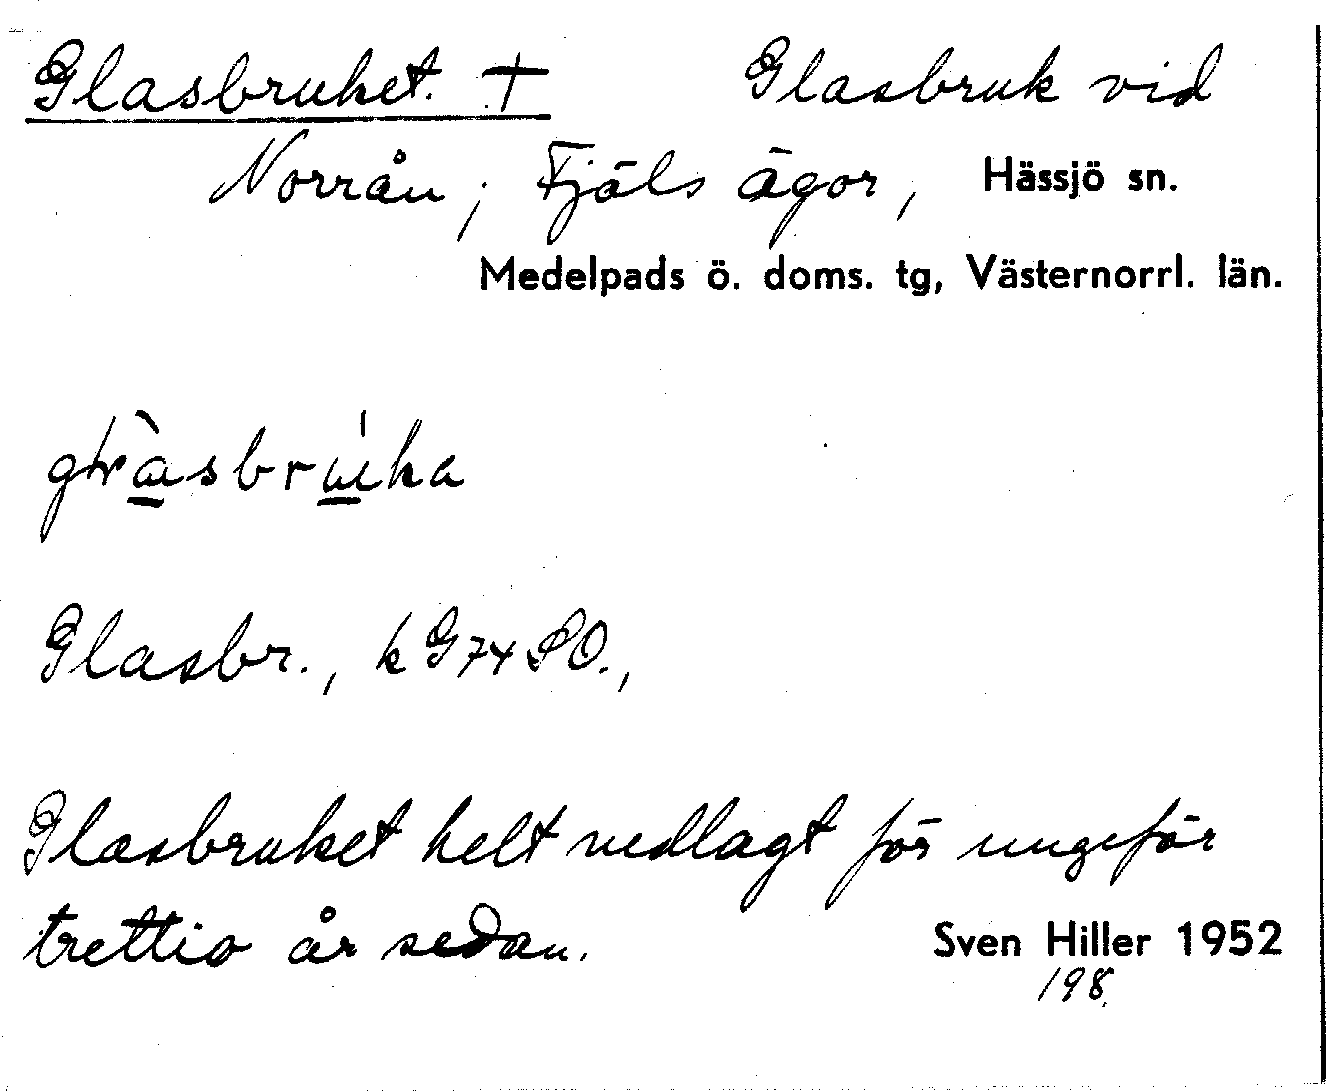 Glasbruket. † Glasbruk vid
Norrån, Fjäls ägor, Hässjö sn.
Medelpads ö. doms. tg, Västernorrl. län.
Glasbr., k G74 SO.,
Glasbruket helt nedlagt för ungefär
trettio år sedan.
Sven Hiller 1952
198